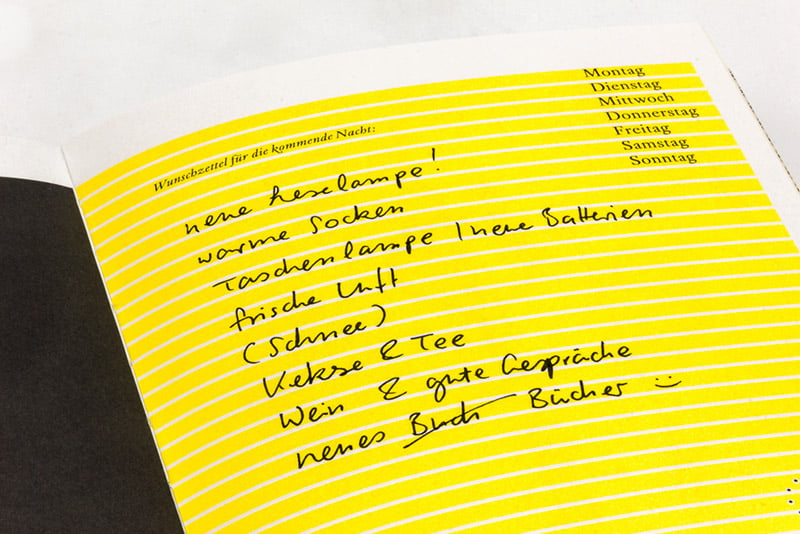 Montag
Dienstag
Mittwoch
Donnerstag
Freitag
Samstag
Sonntag
Wunschzettel für die kommende Nacht:
neue Leselampe!
warme Socken
Taschenlampe / neue Batterien
frische Luft
(Schnee)
Kekse & Tee
Wein & gute Gespräche
neues Buch Bücher :)